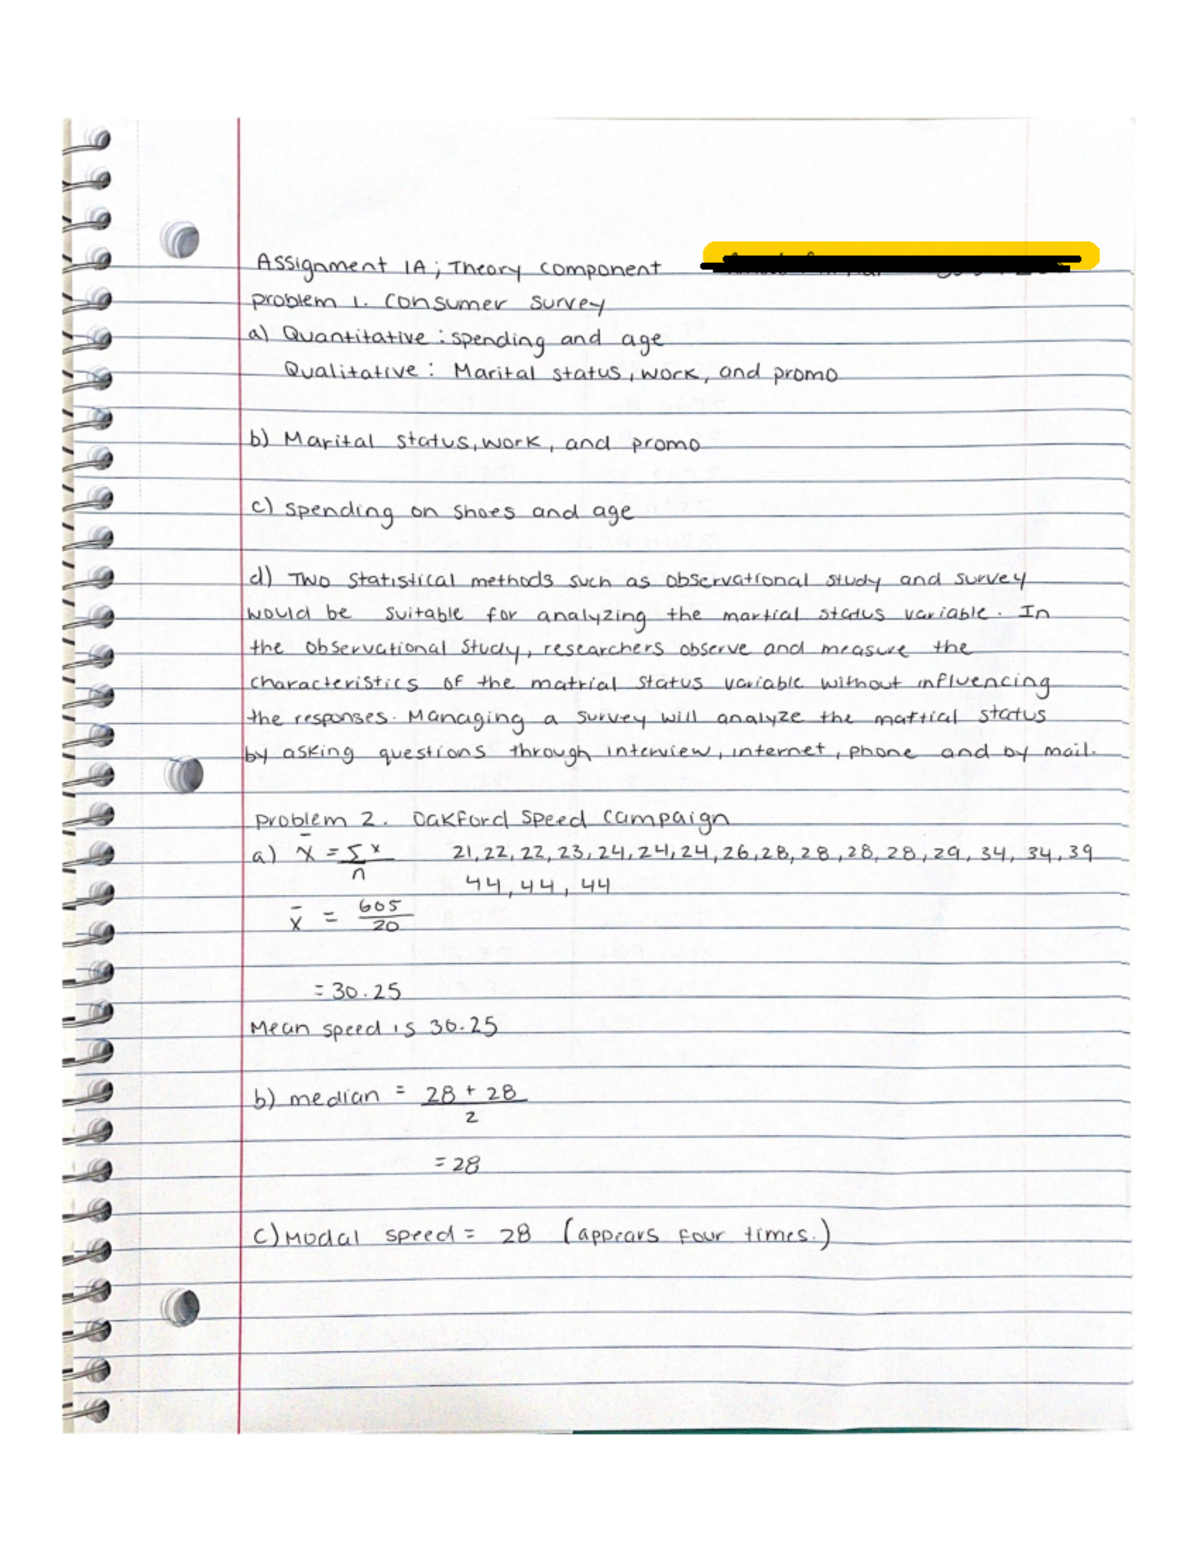 Assignment 1A; Theory component
problem 1. Consumer survey
a) Quantitative: spending and age
Qualitative: Marital status, work, and promo
b) Marital status, work, and promo
c) spending on shoes and age
d) Two statistical methods such as observational study and survey
would be suitable for analyzing the martial status variable. In
the observational study, researchers observe and measure the
characteristics of the matrial status variable without influencing
the responses. Managing a survey will analyze the mattial status
by asking questions through interview, internet, phone and by mail.
Problem 2. Oakford speed campaign
a) x̄ = Σx / n 21, 22, 22, 23, 24, 24, 24, 26, 28, 28, 28, 28, 29, 34, 34, 39
44, 44, 44
x̄ = 605 / 20
= 30.25
Mean speed is 30.25
b) median = 28 + 28 / 2
= 28
c) Modal speed = 28 (appears four times.)